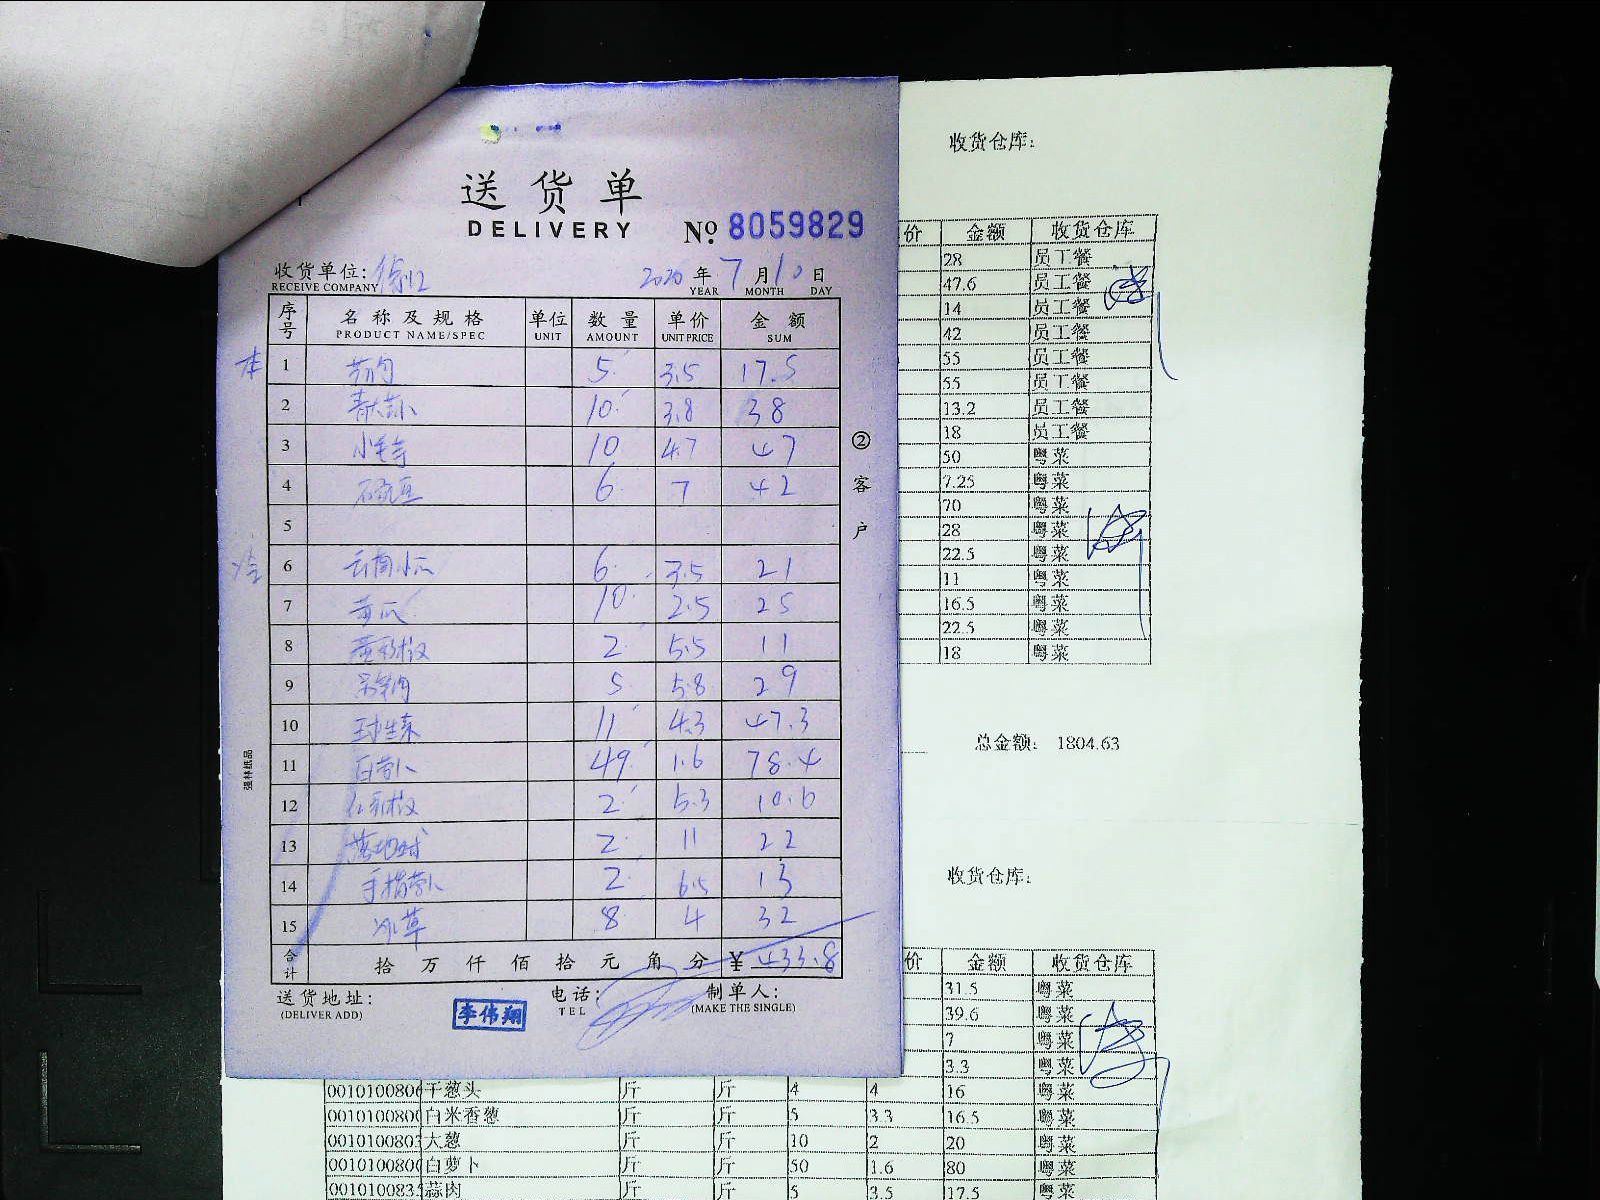 收货仓库：
送货单
DELIVERY
№ 8059829
收货单位：
RECEIVE COMPANY
2020 年 7 月 10 日
YEAR MONTH DAY
序号 名称及规格 单位 数量 单价 金额
PRODUCT NAME/SPEC UNIT AMOUNT UNIT PRICE SUM
1 5 3.5 17.5
2 10 3.8 38
3 10 4.7 47
4 6 7 42
5
6 云南小瓜 6 3.5 21
7 黄瓜 10 2.5 25
8 2 5.5 11
9 5 5.8 29
10 11 4.3 47.3
11 白萝卜 49 1.6 78.4
12 2 5.3 10.6
13 2 11 22
14 手指萝卜 2 6.5 13
15 冰草 8 4 32
合计 拾万仟佰拾元角分 ¥ 433.8
送货地址：
(DELIVER ADD)
李伟翔
电话：
TEL
制单人：
(MAKE THE SINGLE)
② 客户
强林纸品
价 金额 收货仓库
28 员工餐
47.6 员工餐
14 员工餐
42 员工餐
55 员工餐
55 员工餐
13.2 员工餐
18 员工餐
50 粤菜
7.25 粤菜
70 粤菜
28 粤菜
22.5 粤菜
11 粤菜
16.5 粤菜
22.5 粤菜
18 粤菜
总金额： 1804.63
收货仓库：
价 金额 收货仓库
31.5 粤菜
39.6 粤菜
7 粤菜
3.3 粤菜
0010100806 干葱头 斤 斤 4 4 16 粤菜
001010080 白米香葱 斤 斤 5 3.3 16.5 粤菜
001010080 大葱 斤 斤 10 2 20 粤菜
001010080 白萝卜 斤 斤 50 1.6 80 粤菜
001010083 蒜肉 斤 斤 5 3.5 17.5 粤菜